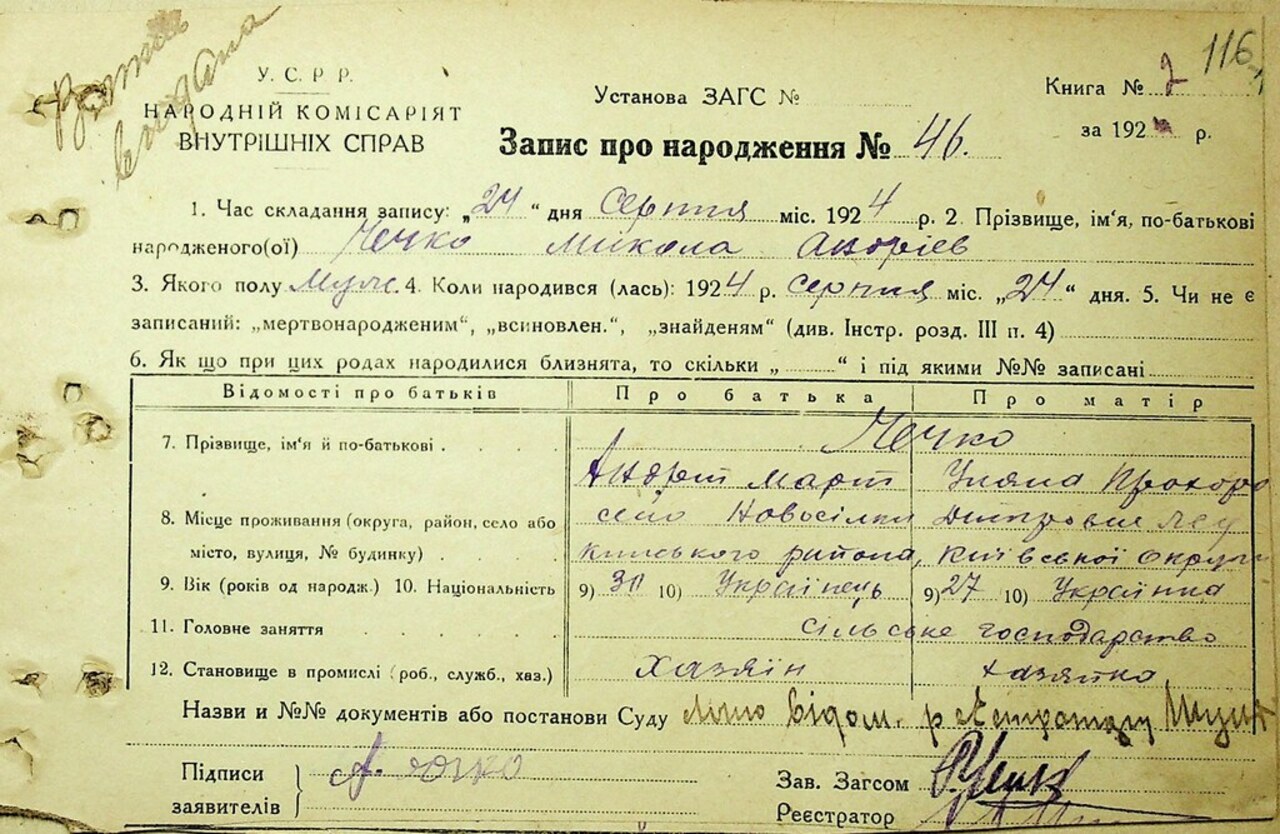 видана
116
У. С. Р. Р.
НАРОДНІЙ КОМІСАРІЯТ
ВНУТРІШНІХ СПРАВ
Установа ЗАГС №
Книга № 2
за 192 р.
Запис про народження № 46.
1. Час складання запису: „24“ дня Серпня міс. 1924 р. 2. Прізвище, ім'я, по-батькові
народженого(ої) Чечко Микола Андріїв
3. Якого полу Муж. 4. Коли народився (лась): 1924 р. Серпня міс. „24“ дня. 5. Чи не є
записаний: „мертвонародженим“, „всиновлен.“, „знайденям“ (див. Інстр. розд. III п. 4)
6. Як що при цих родах народилися близнята, то скільки „ “ і під якими №№ записані
Відомості про батьків Про батька Про матір
7. Прізвище, ім'я й по-батькові Чечко
Андрій Март Уляна Прохоро
8. Місце проживання (округа, район, село або село Новосілки
місто, вулиця, № будинку) района, Київської округи
9. Вік (років од народж.) 10. Національність 9) 30 10) Українець 9) 27 10) Українка
11. Головне заняття сільське господарство
12. Становище в промислі (роб., служб., хаз.) хазяїн хазяйка
Назви и №№ документів або постанови Суду відом.
Підписи
заявителів
А.
Зав. Загсом
Реєстратор